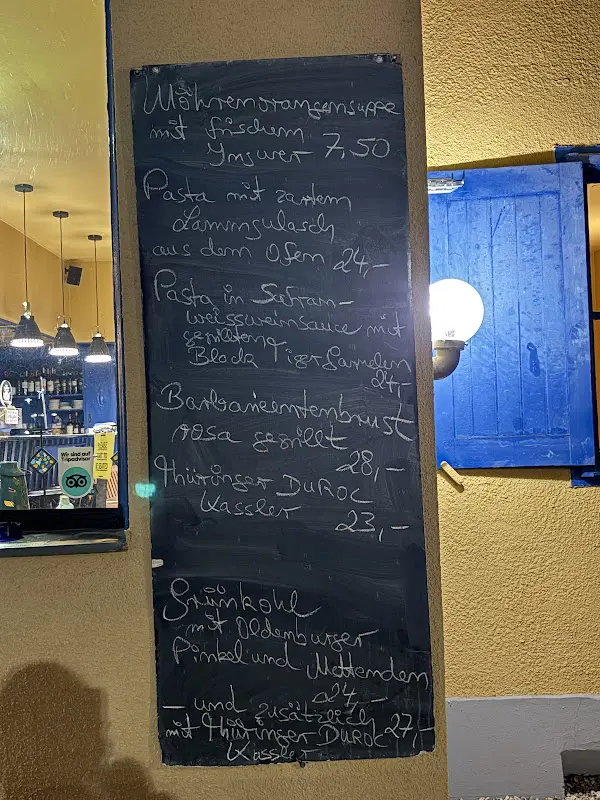 Möhrenorangensuppe
mit frischem
Ingwer 7,50
Pasta mit zartem
Lammgulasch
aus dem Ofen 24,-
Pasta in Safran-
weissweinsauce mit
gegrillten
Black Tiger Garnelen
24,-
Barbarieentenbrust
rosa gegrillt
28,-
Thüringer DUROC
Kassler 23,-
Grünkohl
mit Oldenburger
Pinkel und Mettenden
24,-
- und zusätzlich
mit Thüringer DUROC 27,-
Kassler
Wir sind auf
Tripadvisor